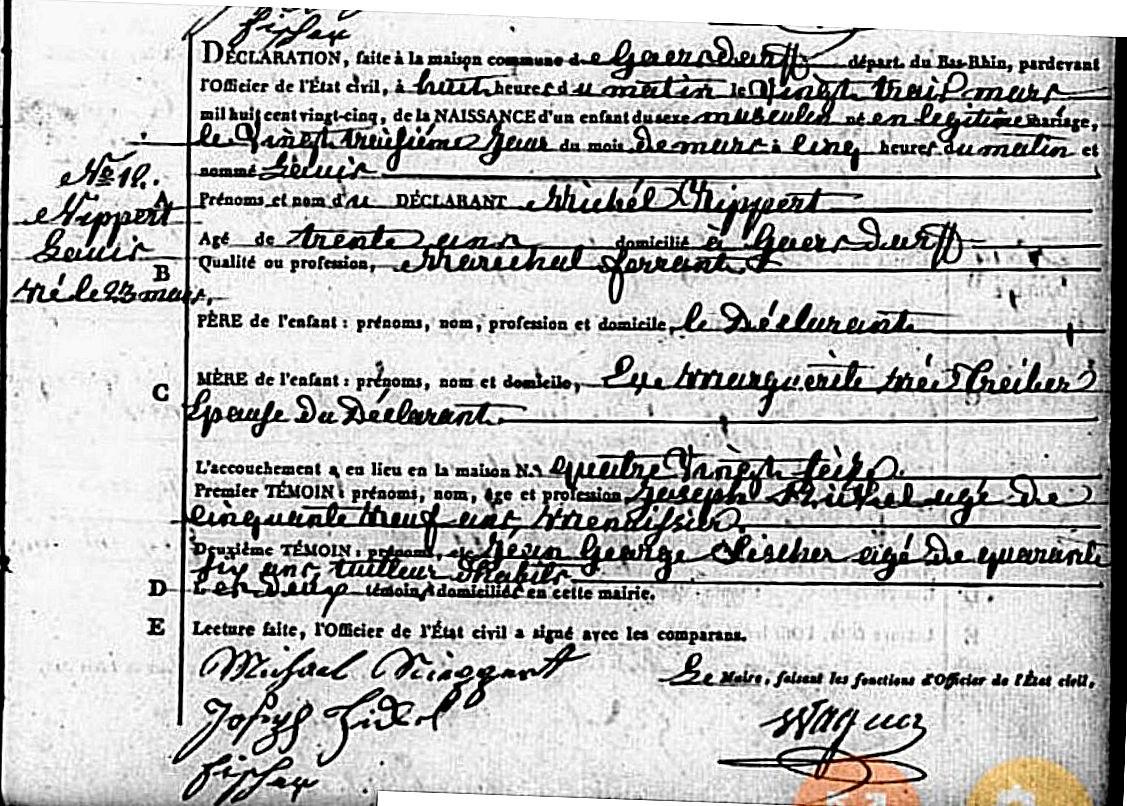 fischer
DÉCLARATION, faite à la maison commune de Goersdorff départ. du Bas-Rhin, pardevant
l'Officier de l'État civil, à huit heures du matin le Vingt trois mars
mil huit cent vingt-cinq, de la NAISSANCE d'un enfant du sexe masculin né en legitime mariage,
le Vingt troisième Jour du mois de mars à cinq heures du matin et
nommé Louis
No 12.
A Prénoms et nom du DÉCLARANT Michel Nippert
Nippert
Agé de trente ans domicilié à Goersdorff
Louis
B Qualité ou profession, Maréchal ferrant
né le 23 mars,
PÈRE de l'enfant : prénoms, nom, profession et domicile, le Déclarant
C MÈRE de l'enfant : prénoms, nom et domicile, Eve Marguerite née Treiber
Epouse du Déclarant
L'accouchement a eu lieu en la maison N.º quatre Vingt
Premier TÉMOIN : prénoms, nom, âge et profession Joseph agé de
cinquante neuf ans, menuissier
Deuxième TÉMOIN : prénoms, etc Jean George Fischer agé de quarante
six ans tailleur d'habits
D Les deux témoins domiciliés en cette mairie.
E Lecture faite, l'Officier de l'État civil a signé avec les comparans.
Michael Nippert
Le Maire, faisant les fonctions d'Officier de l'État civil.
Joseph
Wagner
fischer